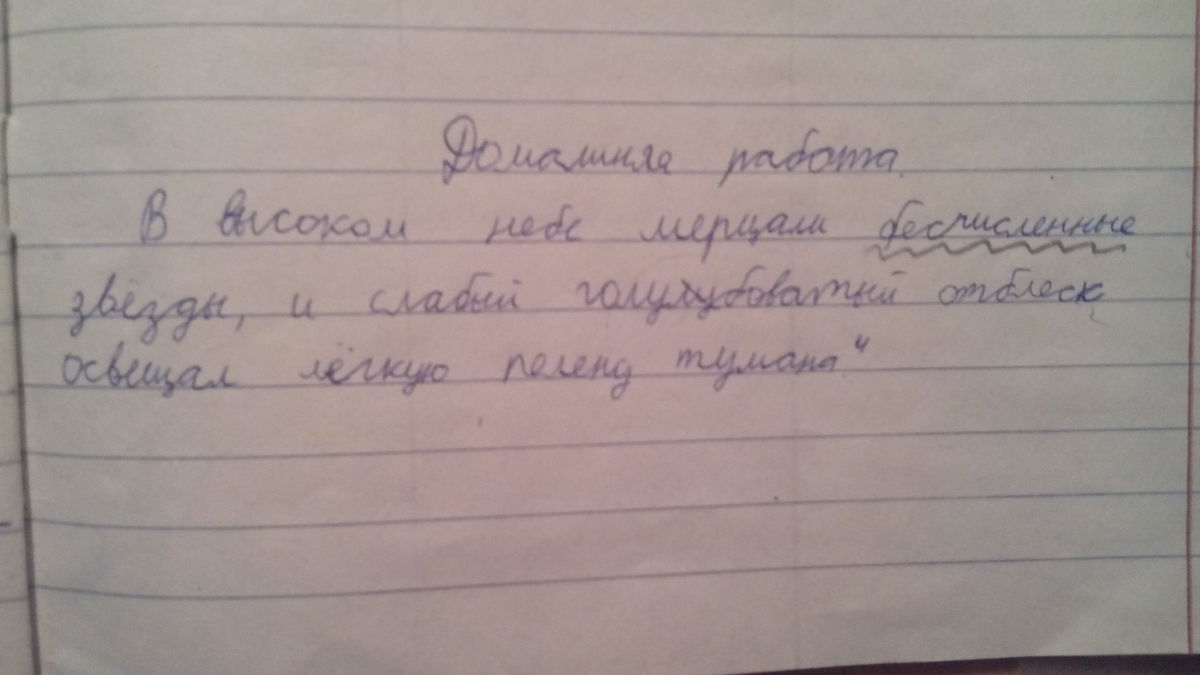 Домашняя работа.
В высоком небе мерцали бесчисленные
звёзды, и слабый голулубоватый отблеск
освещал лёгкую пелену тумана"